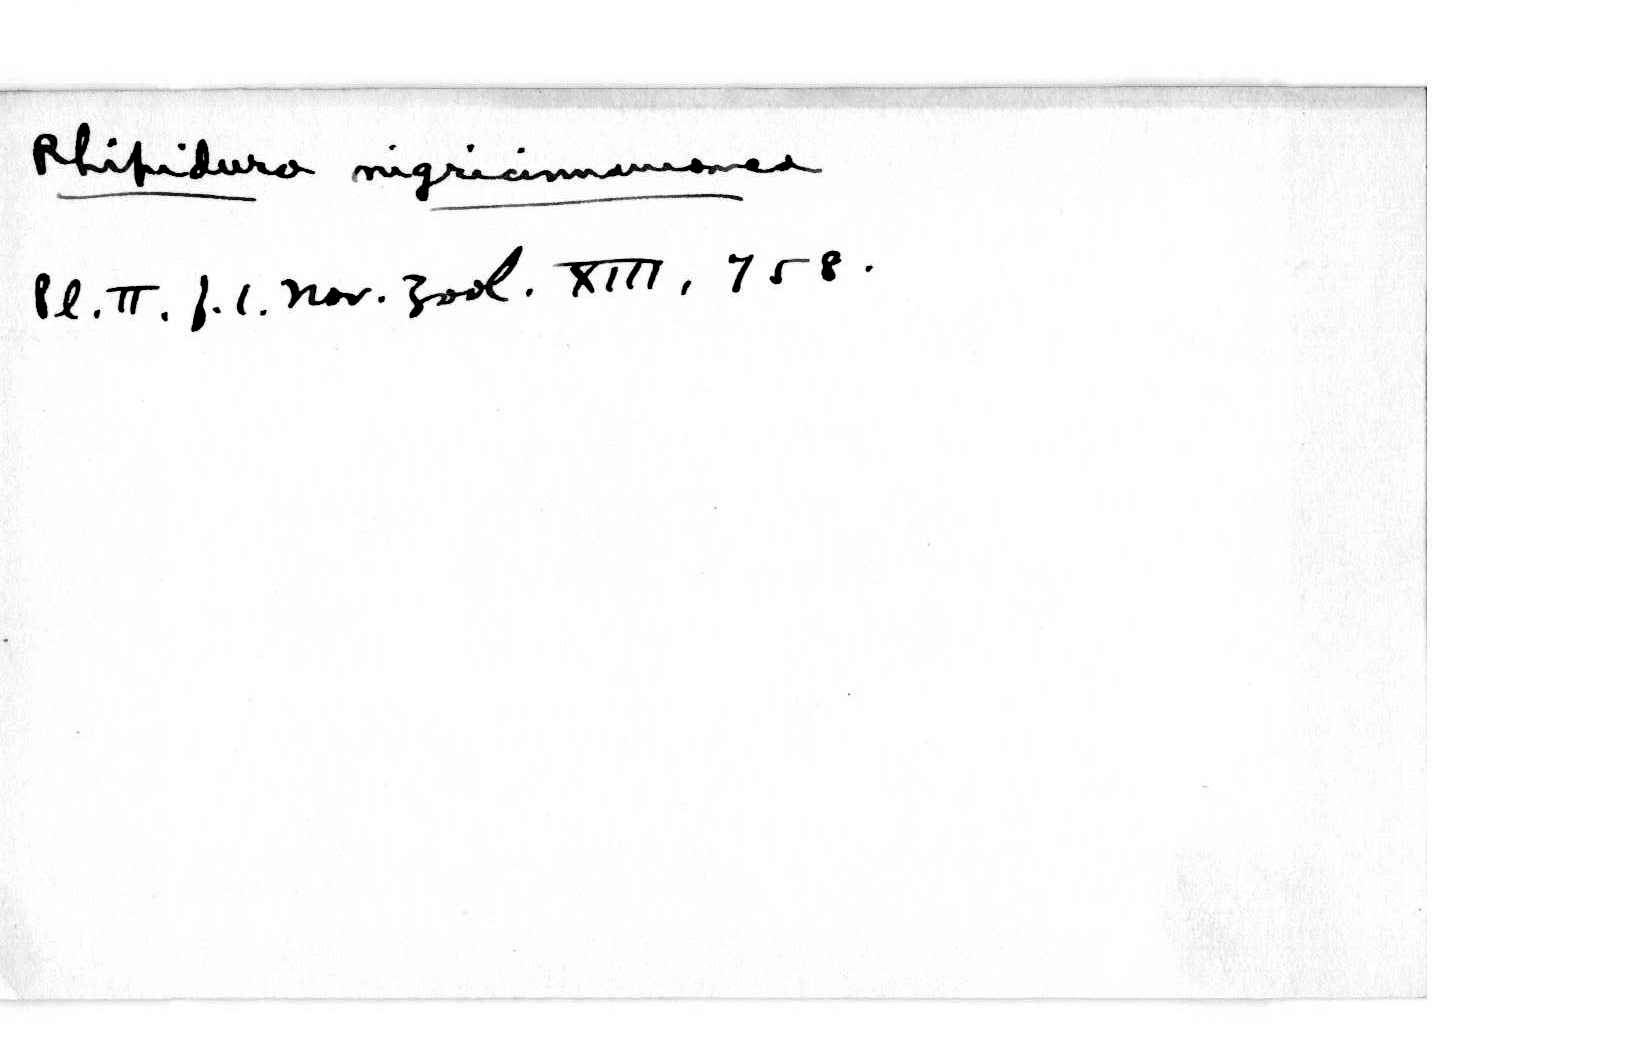 Rhipidura nigricinnamomea
Pl. II. f. 1. Nov. Zool. XIII, 758.